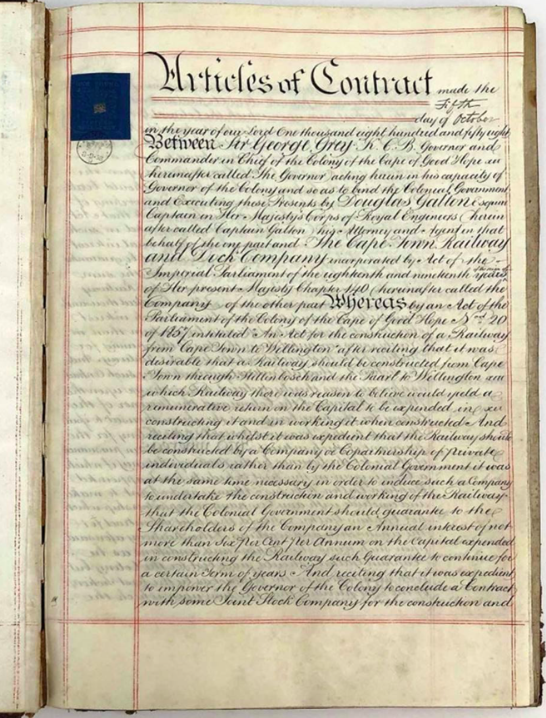 Articles of Contract made the
Fifth
day of October
in the year of our Lord One thousand eight hundred and fifty eight
Between Sir George Grey K.C.B. Governor and
Commander in Chief of the Colony of the Cape of Good Hope
hereinafter called The Governor acting herein in his capacity of
Governor of the Colony and so as to bind the Colonial Government
and Executing these Presents by Douglas Galton Esquire
Captain in Her Majesty's Corps of Royal Engineers (herein
after called Captain Galton) his Attorney and Agent in that
behalf of the one part and The Cape Town Railway
and Dock Company incorporated by Act of the
Imperial Parliament of the eighteenth and nineteenth years
of Her present Majesty Chapter 140 (hereinafter called the
Company) of the other part Whereas by an Act of the
Parliament of the Colony of the Cape of Good Hope No. 20
of 1857 intituled "An Act for the construction of a Railway
from Cape Town to Wellington" after reciting that it was
desirable that a Railway should be constructed from Cape
Town through Stellenbosch and the Paarl to Wellington
which Railway there was reason to believe would yield a
remunerative return on the Capital to be expended in
constructing it and in working it when constructed And
reciting that whilst it was expedient that the Railway should
be constructed by a Company or Copartnership of private
individuals rather than by the Colonial Government it was
at the same time necessary in order to induce such a Company
to undertake the construction and working of the Railway
that the Colonial Government should guarantee to the
Shareholders of the Company an Annual interest of not
more than Six Per Cent Per Annum on the Capital expended
in constructing the Railway such Guarantee to continue for
a certain term of years And reciting that it was expedient
to impower the Governor of the Colony to conclude a Contract
with some Joint Stock Company for the construction and